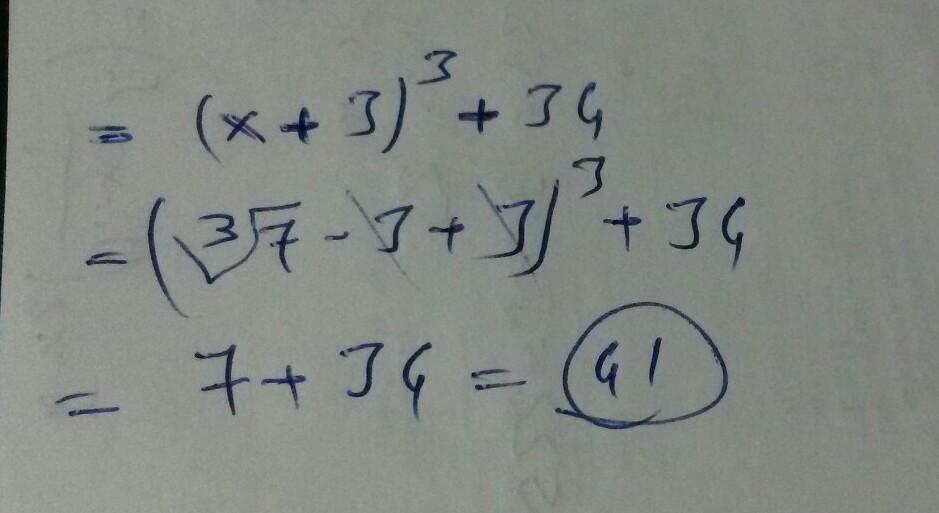 = (x + 3)³ + 34
= (∛7 - 3 + 3)³ + 34
= 7 + 34 = 41